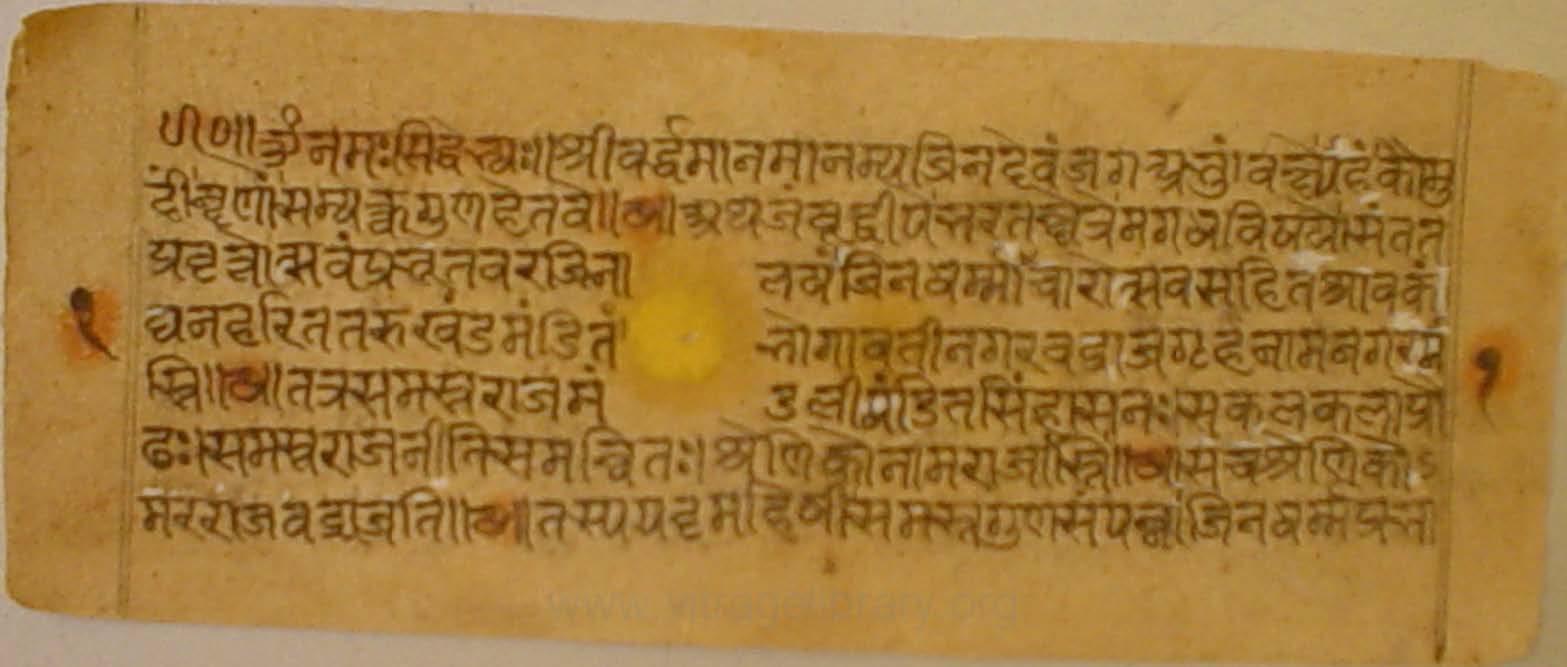 ॥ ॐ नमः सिद्धेभ्यः॥ श्रीवर्द्धमानमानम्य जिनदेवं जगत्प्रभुं। वक्ष्येहं कौमु
दीं नृणां सम्यक्त्वगुणहेतवे॥ छ॥ अथ जंबूद्वीपे भरतक्षेत्रे मगधविषये। संतत
प्रवृत्तोत्सवंप्रभूतवरजिना लयंजिनधर्म्माचारोत्सवसहितश्रावकं।
घनहरिततरुखंडमंडितं भोगावतीनगरवद्राजगृहनामनगरम
स्ति॥ छ॥ तत्रसमस्तराजमं डलीमंडितसिंहासनः। सकलकलाप्रौ
ढः। समस्तराजनीतिसमन्वितः। श्रेणिकोनामराजास्ति॥ छ॥ सचश्रेणिकोऽ
मरराजवद्राजति॥ छ॥ तस्यपट्टमहिषी। समस्तगुणसंपन्ना। जिनधर्म्मप्रभा
१
१
www.jaingelibrary.org